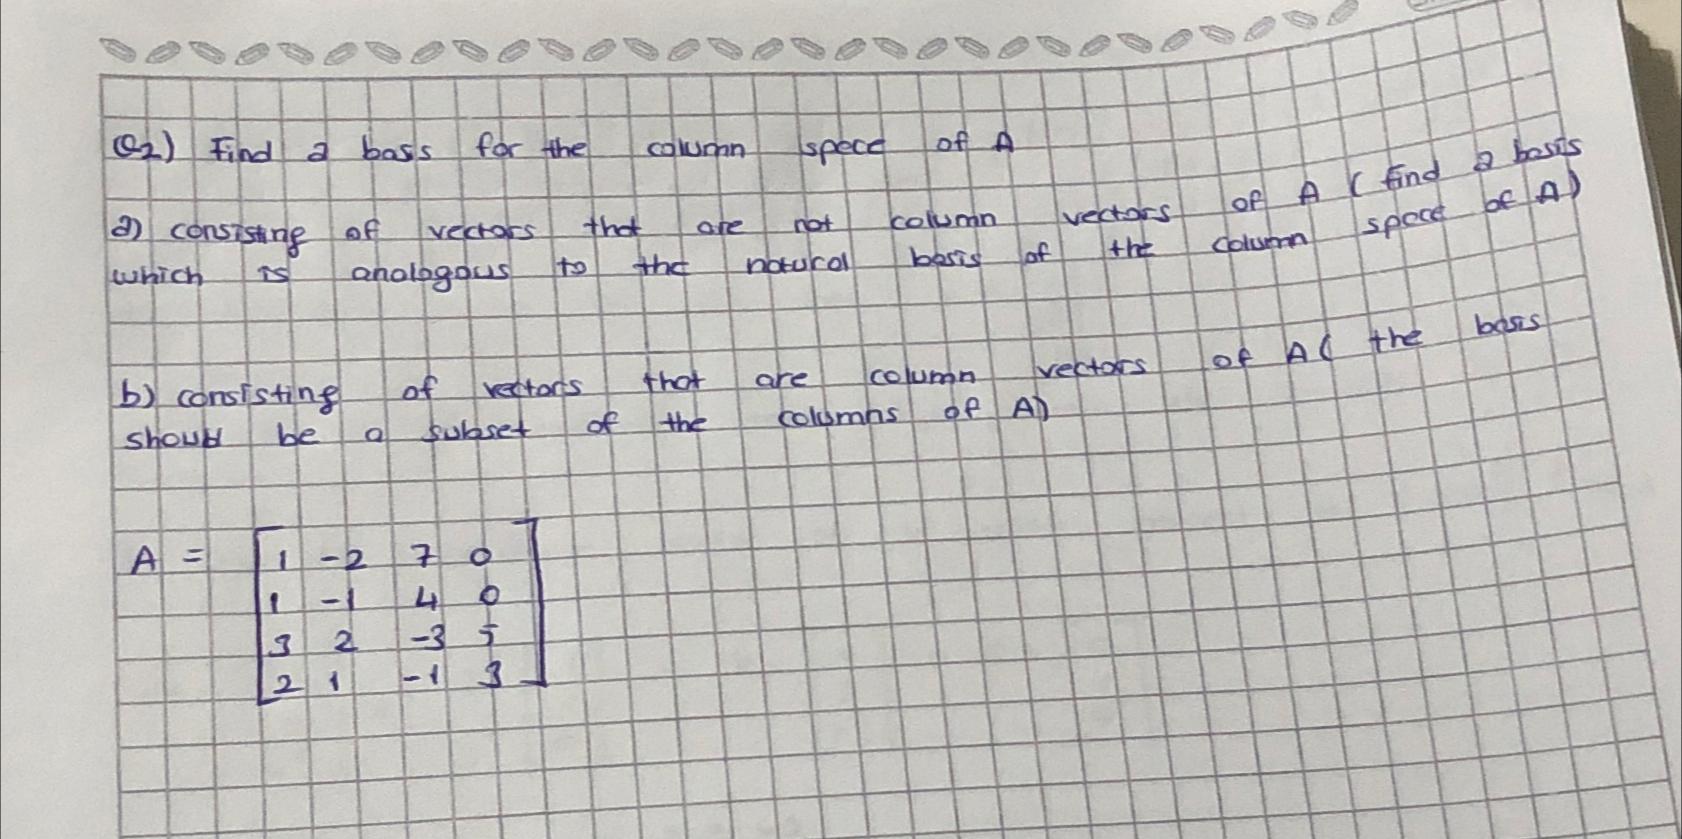 Q2) Find a basis for the column spece of A
a) consisting of vectors that are not column vectors of A ( find a basis
which is analogous to the natural basis of the column spece of A)
b) consisting of vectors that are column vectors of A( the basis
should be a subset of the columns of A)
A = [ 1 -2 7 0
1 -1 4 0
3 2 -3 5
2 1 -1 3 ]